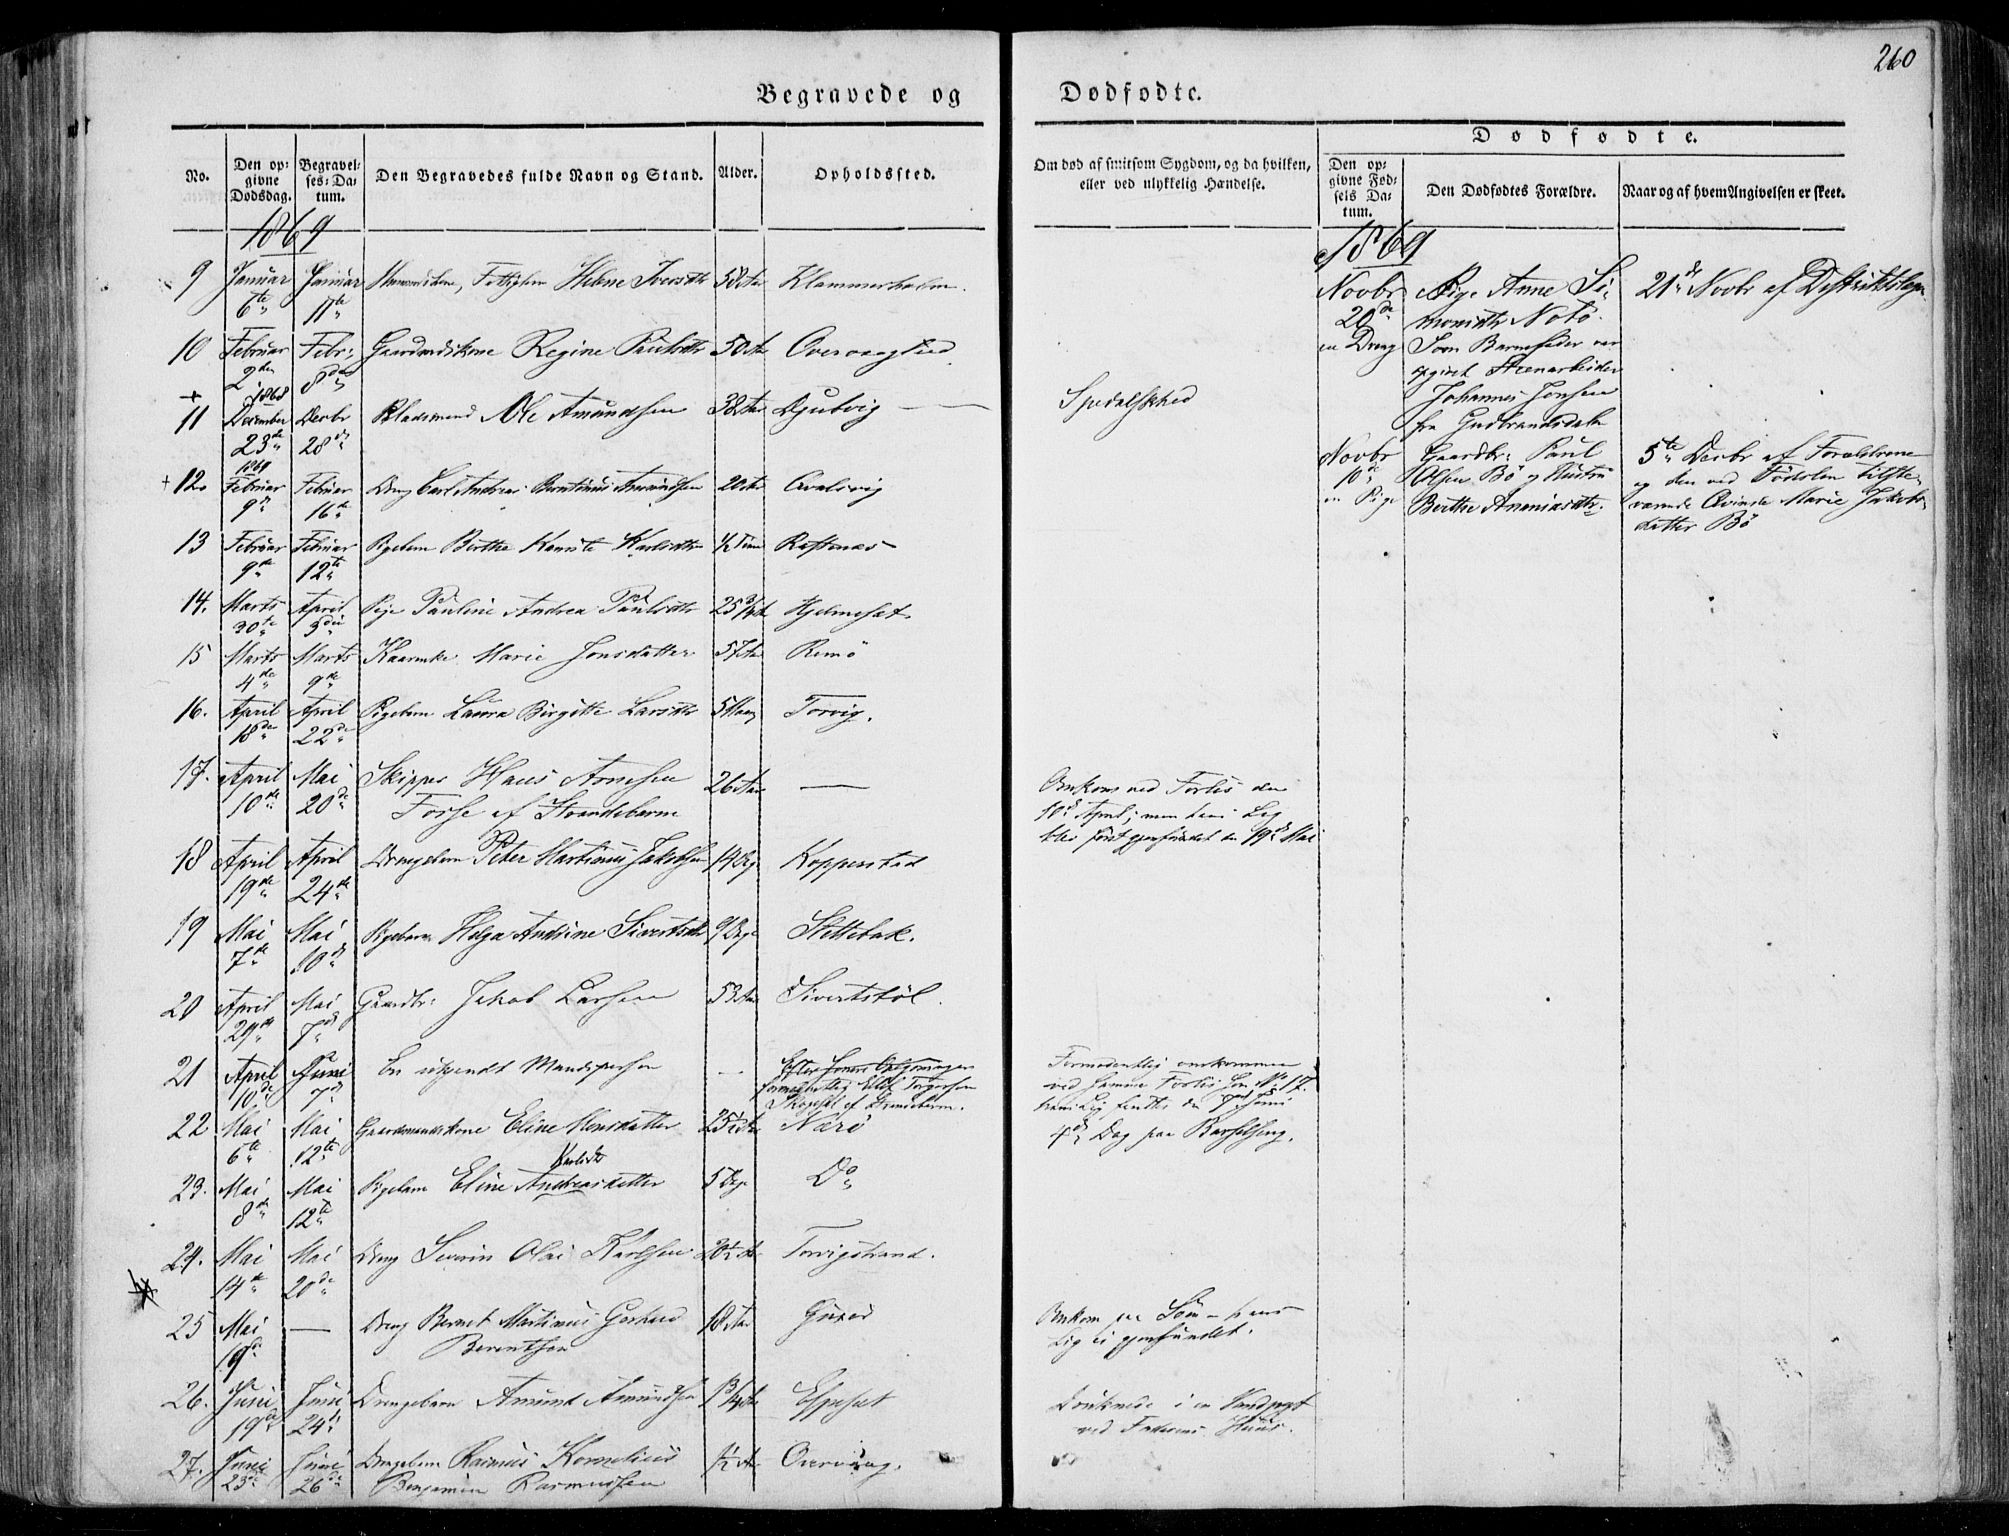 260
Begravede og
Dødfødte.
No.
Den op-
givne
Dødsdag.
Begravel-
ses-Da-
tum.
Den Begravedes fulde Navn og Stand.
Alder.
Opholdssted.
Om død af smitsom Sygdom, og da hvilken,
eller ved ulykkelig Hændelse.
Dødfødte.
Den op-
givne Fød-
sels Da-
tum.
Den Dødfødtes Forældre.
Naar og af hvem Angivelsen er skeet.
1869
9 Januar 6te Januar 11te Helene Iversdtr 58 Aar
10 Februar 2den Febr: 8de Gaardmandskone Regine Paulsdtr 50 Aar
+ 1868
11 December 23de Decbr 28de Pladsmand Ole Amundsen 38 Aar Djubvig — Spedalskhed
1869
+ 12. Februar 9de Februar 16de Dreng Carl Andreas Berntinus Amundsen 20 Aar
13 Februar 9de Februar 12te Pigebarn Berthe Karlsdtr ½ Time Raftenæs
14. Marts 30te April 3die Pige Pauline Andrea Paulsdtr 25 3/4 Aar Hjelmeset
15 Marts 4de Marts 9de Marie Jonsdatter 57 Aar Remø
16. April 18de April 22de Pigebarn Laura Birgitte Larsdtr Torvig.
17. April 10de Mai 20de Skipper Hans Arnesen
Forse af Strandebarm 26 Aar —
Omkom ved Forlis den
10de April; men hans Lig
blev først gjenfundet den 19de Mai
18 April 19de April 24de Drengebarn Peter Martinus Jakobsen 14 Dge Koppenstad
19 Mai 7de Mai 10de Pigebarn Helga Andrine Sivertsdtr 9 Dage Slettebak.
20 April 29de Mai 7de Gaardbr: Jakob Larsen 53 Aar Sivertstøl.
21 April 10de Juni 7de En ukjendt Mandsperson —
formodentlig
af Strandebarm.
Formodentlig omkommen
ved samme Forlis som No 17.
hans Lig fandtes den Juni
22 Mai 6te Mai 12te Gaardmandskone Eline Monsdatter 25½ Aar Nærø
4de Dag paa Barselseng.
Karlsdtr
23. Mai 8de Mai 12te Pigebarn Eline Andreasdatter 5 Dge Do
24. Mai 14de Mai 20de Dreng Severin Olai Karlsen 20½ Aar Torvigstrand.
25 Mai 19de — Dreng Bernt Martinus Gerhard
Berentsen 18 Aar
Omkom paa Søen – hans
Lig ei gjenfundet.
26. Juni 19de Juni 24de Drengebarn Amund Amundsen 1 3/4 Aar Espeset
Druknede i en Vandpyt
ved Faderens Huus.
27. Juni 23de Juni 26de Drengebarn Rasmus Kornelius
Benjamin Rasmussen ½ Aar Overvaag.
1869
Novbr
20de
en Dreng
Pige Anne Si-
monsdtr Notø.
Som Barnefader var
opgivet Steenarbeider
Johannes Jonsen
fra Gudbrandsdalen
21de Novbr af Distriktslægen
Novbr
10de
en Pige
Gaardbr: Paul
Olsen Bø og Hustru
Berthe Ananiasdtr.
5te Decbr af Forældrene
og den ved Fødslen tilste-
værende Qvinde Marie Jakobs-
datter Bø